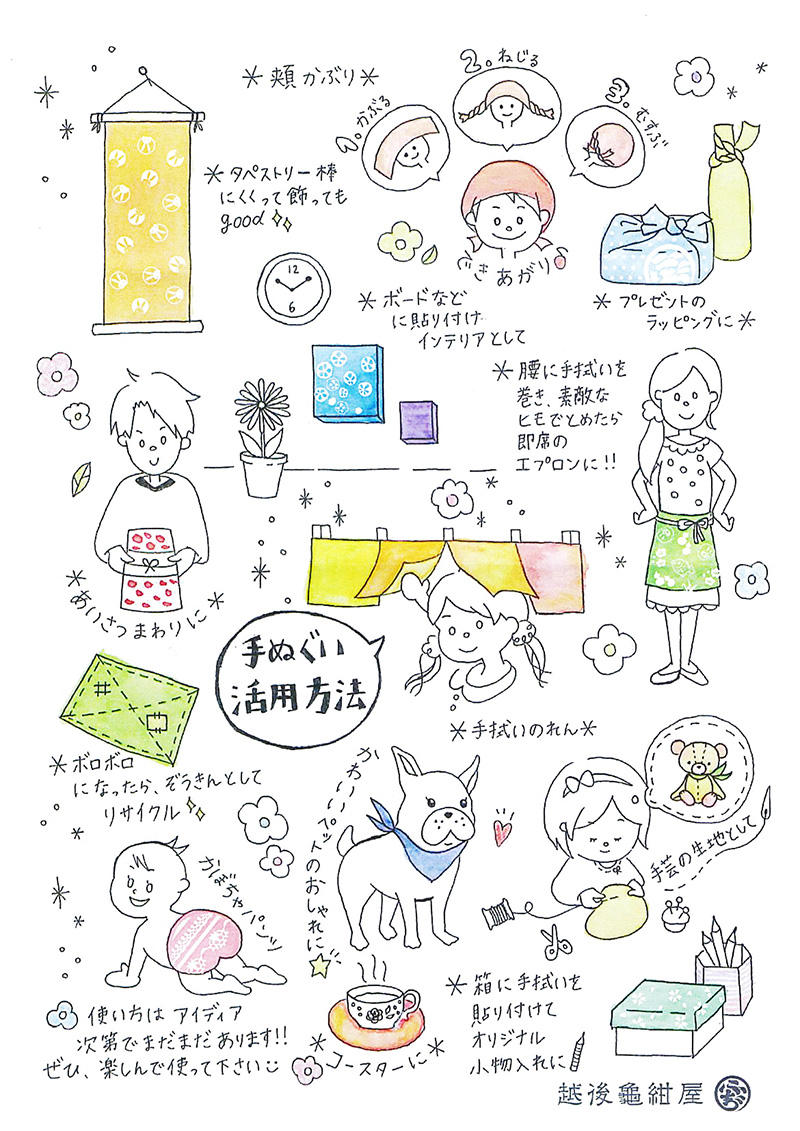 ＊頬かぶり＊
1.かぶる
2.ねじる
3.むすぶ
できあがり
＊タペストリー棒
にくくって飾っても
good
12
6
＊ボードなど
に貼り付け
インテリアとして
＊プレゼントの
ラッピングに＊
＊腰に手拭いを
巻き、素敵な
ヒモでとめたら
即席の
エプロンに!!
＊あいさつまわりに＊
手ぬぐい
活用方法
＊手拭いのれん＊
＊ボロボロ
になったら、ぞうきんとして
リサイクル
かわいいペットのおしゃれに
手芸の生地として
かぼちゃパンツ
＊箱に手拭いを
貼り付けて
オリジナル
小物入れに
＊コースターに＊
使い方は アイディア
次第でまだまだあります!!
ぜひ、楽しんで使って下さい
越後龜紺屋